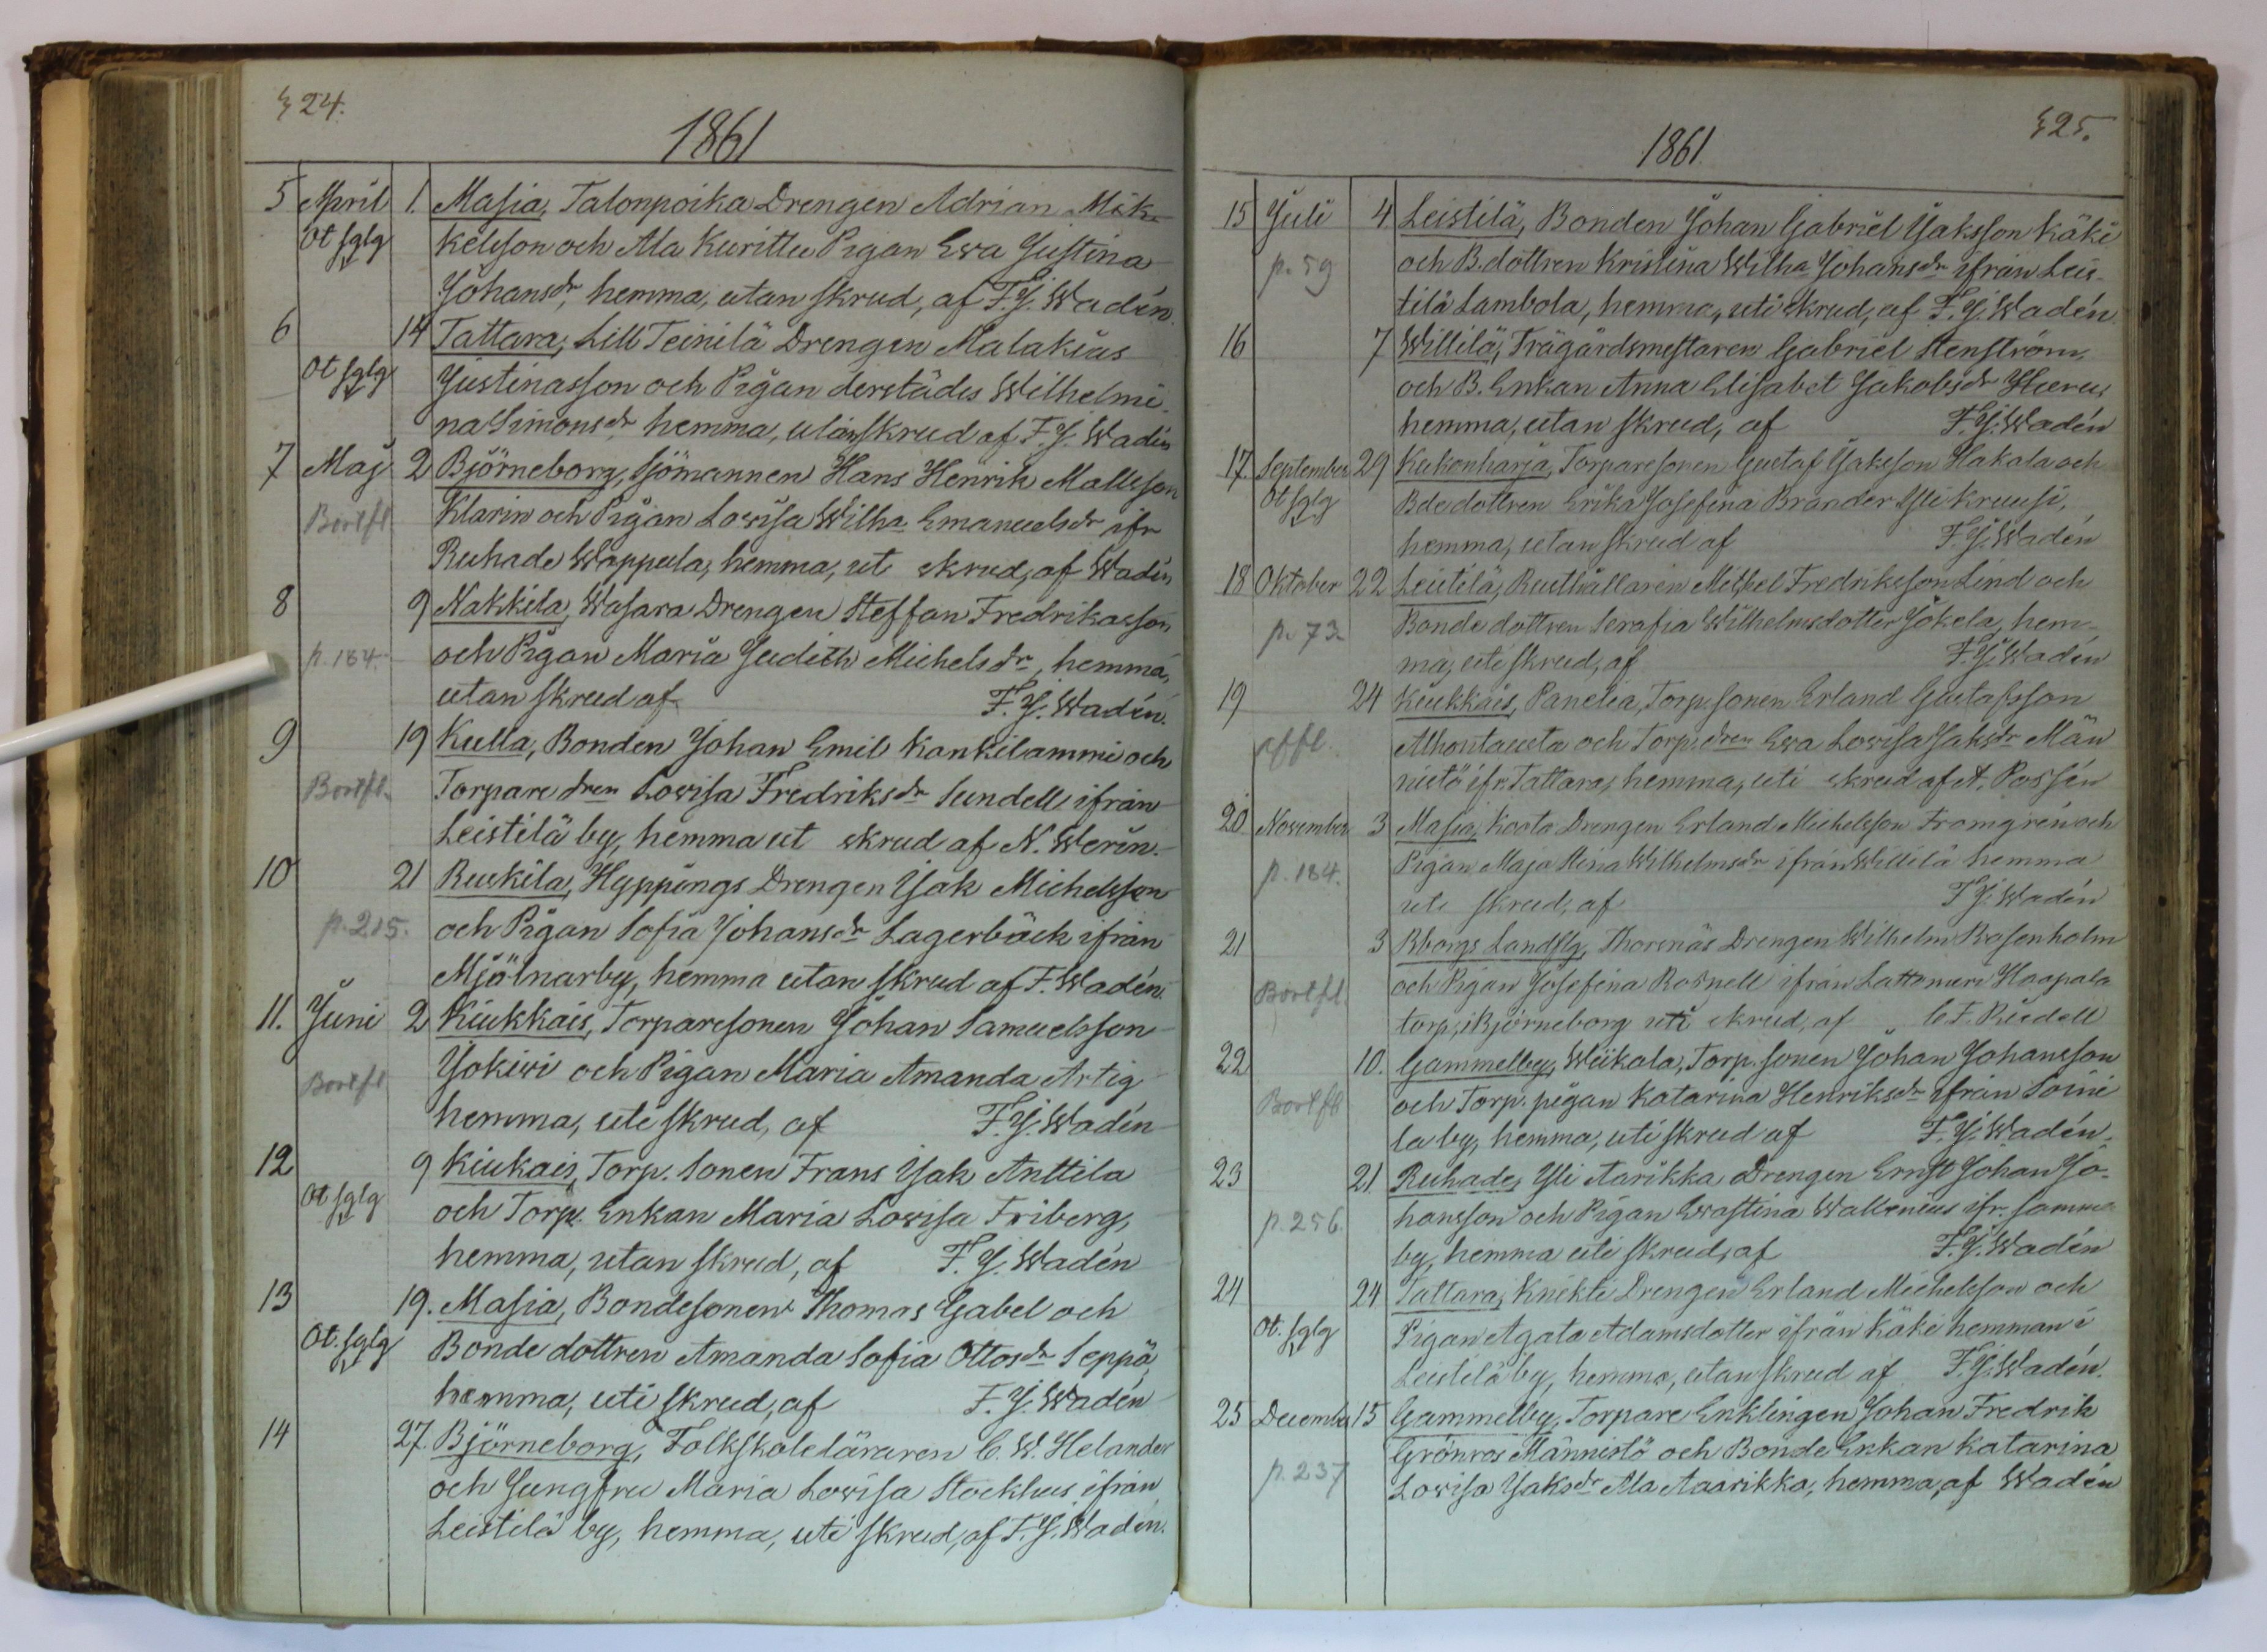 424.
1861
5 April 1. Masia, Talonpoika Drengen Adrian Mik-
Ot sglg kelsson och Ala Kurittu Pigan Ewa Justina
Johansdr, hemma, utan skrud, af F. J. Wadén.
6 14 Tattara, Lill Teinilä Drengen Malakias
Ot sglg Justinasson och Pigan derstädes Wilhelmi-
na Simonsdr hemma, utan skrud af F. J. Wadén
7 Maj 2 Björneborg, Sjömannen Hans Henrik Mattsson
Bortfl. Klarin och Pigan Lovisa Wilha Emanuelsdr ifr
Ruhade Wappula, hemma, uti skrud, af Wadén
8 9 Nakkila, Wasara Drengen Steffan Fredrikasson
p. 184. och Pigan Maria Judith Michelsdr, hemma,
utan skrud af F. J. Wadén.
9 19 Kulla, Bonden Johan Emil Kankilammi och
Bortfl. Torpare dren Lovisa Fredriksdr Sundell ifrån
Leistilä by, hemma ut skrud af N. Werin.
10 21 Ruskila, Hyppings Drengen Isak Michelsson
p. 215. och Pigan Sofia Johansdr Lagerbäck ifrån
Mjölnarby, hemma utan skrud af F. Wadén.
11. Juni 2 Kiukkais, Torparesonen Johan Samuelsson
Bortfl Jokiwi och Pigan Maria Amanda Artig
hemma, uti skrud, af F. J. Wadén
12 9 Kiukais, Torp. Sonen Frans Isak Anttila
Ot sglg och Torp. Enkan Maria Lovisa Friberg,
hemma, utan skrud, af F. J. Wadén
13 19. Masia, Bondesonen Thomas Gabel och
Ot. sglg Bonde dottren Amanda Sofia Ottosdr Seppä,
hemma, uti skrud, af F. J. Wadén
14 27. Björneborg, Folkskoleläraren C. W. Helander
och Jungfru Maria Lovisa Stockhus ifrån
Leistilä by, hemma, uti skrud, af F. J. Wadén.
425.
1861
15 Juli 4 Leistilä, Bonden Johan Gabriel Isaksson Käki
p. 59 och B. dottren Kristina Wilha Johansdr ifrån Leis-
tilä Lambola, hemma, uti skrud, af F. J. Wadén.
16 7 Willilä, Trägårdsmestaren Gabriel Stenström,
och B. Enkan Anna Elisabet Jakobsdr
hemma, utan skrud, af F. J. Wadén
17. September 29 Kukonharja, Torparesonen Gustaf Isaksson Hakala och
Ot sglg Bdedottren Erika Josefina Brander Yli Kruusi,
hemma, utan skrud af F. J. Wadén
18 Oktober 22 Leistilä, Rusthållaren Michel Fredriksson Lind och
p. 73. Bonde dottren Serafia Wilhelmsdotter Jokela, hem-
ma, uti skrud, af F. J. Wadén
19 24 Kiukkais, Panelia, Torp. sonen Erland Gustafsson
Alhontausta och Torp. dren Ewa Lovisa Isaksdr Män
nistö ifr. Tattara, hemma, uti skrud af A. Possén
20 November 3 Masia, Koota Drengen Erland Michelsson Fromgrén och
p. 184. Pigan Maja Stina Wilhelmsdr ifrån Willilä hemma
uti skrud, af F J. Wadén
21 3 Bborgs Landsfg, Thorsnäs Drengen Wilhelm Rosenholm
Bortfl. och Pigan Josefina Rosnell ifrån Lattomeri Haapala
torp, i Björneborg uti skrud, af C. F. Riedell
22 10. Gammelby, Weikola, Torp. Sonen Johan Johansson
Bortfl och Torp. pigan Katarina Henriksdr ifrån Soini
la by, hemma, uti skrud af F. J. Wadén.
23 21. Ruhade, Yli Aarikka Drengen Ernst Johan Jo-
p. 256. hansson och Pigan Ewastina Wallenius ifr. samma
by, hemma uti skrud, af F. J. Wadén
24 24 Tattara, Knekti Drengen Erland Michelsson och
Ot. sglg Pigan Agata Adamsdotter ifrån Käki hemman i
Leistilä by, hemma, utan skrud af F. J. Wadén.
25 December 15 Gammelby, Torpare Enklingen Johan Fredrik
Grönros Männistö och Bonde Enkan Katarina
p. 237 Lovisa Isaksdr Ala Aarikka, hemma, af Wadén